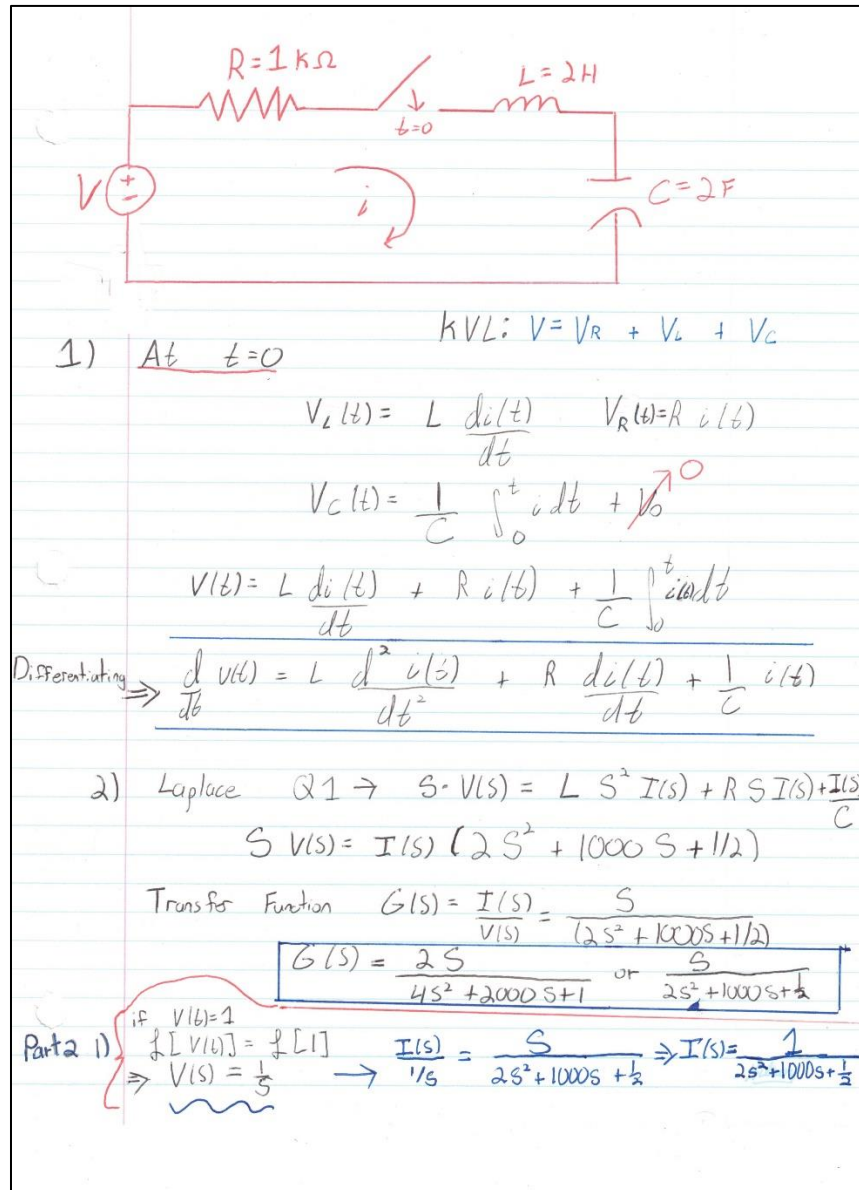 R=1KΩ
L=2H
t=0
V
+
−
i
C=2F
KVL: V= VR + VL + VC
1) At t=0
VL(t)= L di(t)/dt VR(t)=R i(t)
VC(t)= 1/C ∫₀ᵗ i dt + V₀ 0
V(t)= L di(t)/dt + R i(t) + 1/C ∫₀ᵗ i(t)dt
Differentiating ⇒ d/dt v(t) = L d² i(t)/dt² + R di(t)/dt + 1/C i(t)
2) Laplace Q1 → S·V(S) = L S² I(S) + R S I(S) + I(S)/C
S V(S)= I(S) (2S² + 1000 S + 1/2)
Transfer Function G(S) = I(S)/V(S) = S/(2S² + 1000S + 1/2)
G(S) = 2S/4S²+2000S+1 or S/2S²+1000S+½
if V(t)=1
Part2 1) £[V(t)] = £[1]
⇒ V(S) = 1/S → I(S)/1/S = S/2S²+1000S+½ ⇒ I(S)= 1/2S²+1000S+½